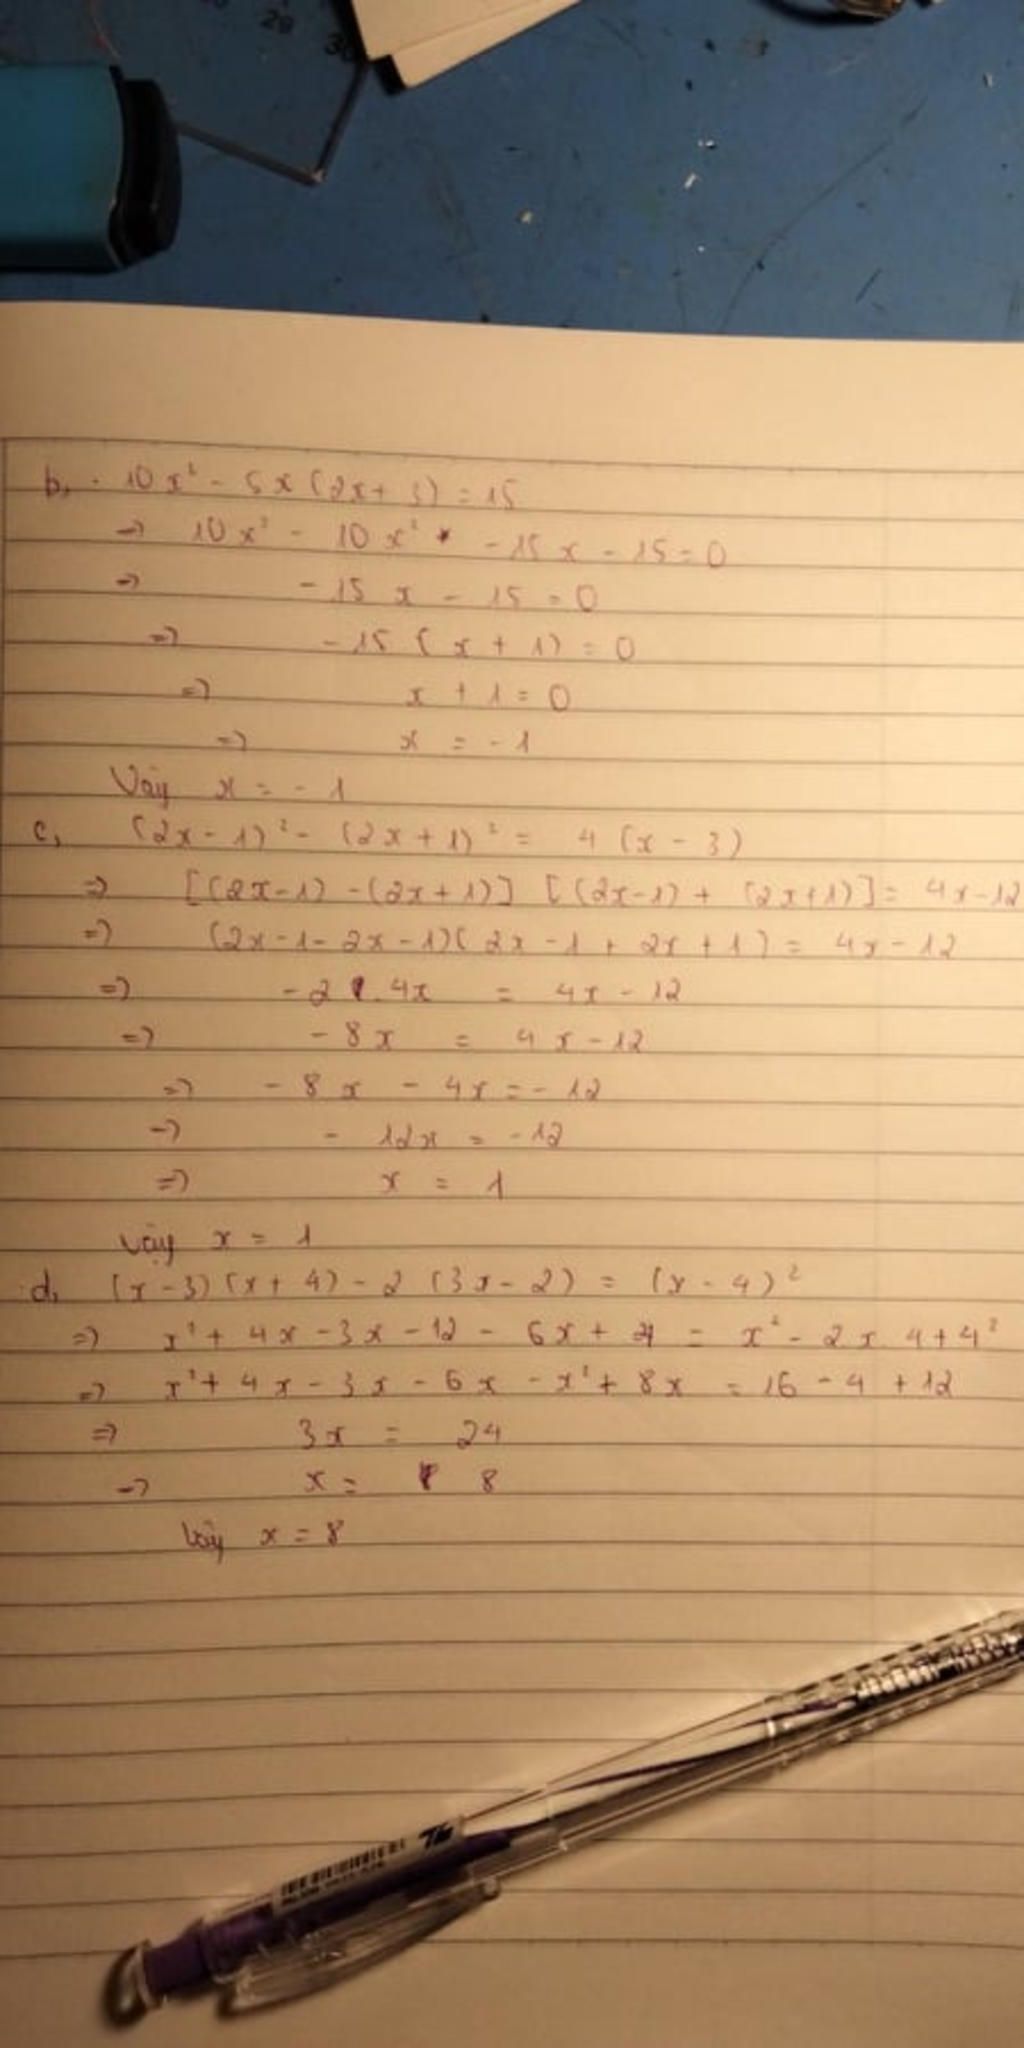 29
30
b, 10x² - 5x (2x + 3) = 15
=> 10x² - 10x² - 15x - 15 = 0
=> - 15x - 15 = 0
=> - 15 (x + 1) = 0
=> x + 1 = 0
=> x = - 1
Vậy x = - 1
c, (2x - 1)² - (2x + 1)² = 4 (x - 3)
=> [(2x-1) - (2x+1)] [(2x-1) + (2x+1)] = 4x-12
=> (2x - 1 - 2x - 1)(2x - 1 + 2x + 1) = 4x - 12
=> - 2 . 4x = 4x - 12
=> - 8x = 4x - 12
=> - 8x - 4x = - 12
=> - 12x = - 12
=> x = 1
Vậy x = 1
d, (x - 3)(x + 4) - 2 (3x - 2) = (x - 4)²
=> x² + 4x - 3x - 12 - 6x + 4 = x² - 2x.4 + 4²
=> x² + 4x - 3x - 6x - x² + 8x = 16 - 4 + 12
=> 3x = 24
=> x = 8
Vậy x = 8